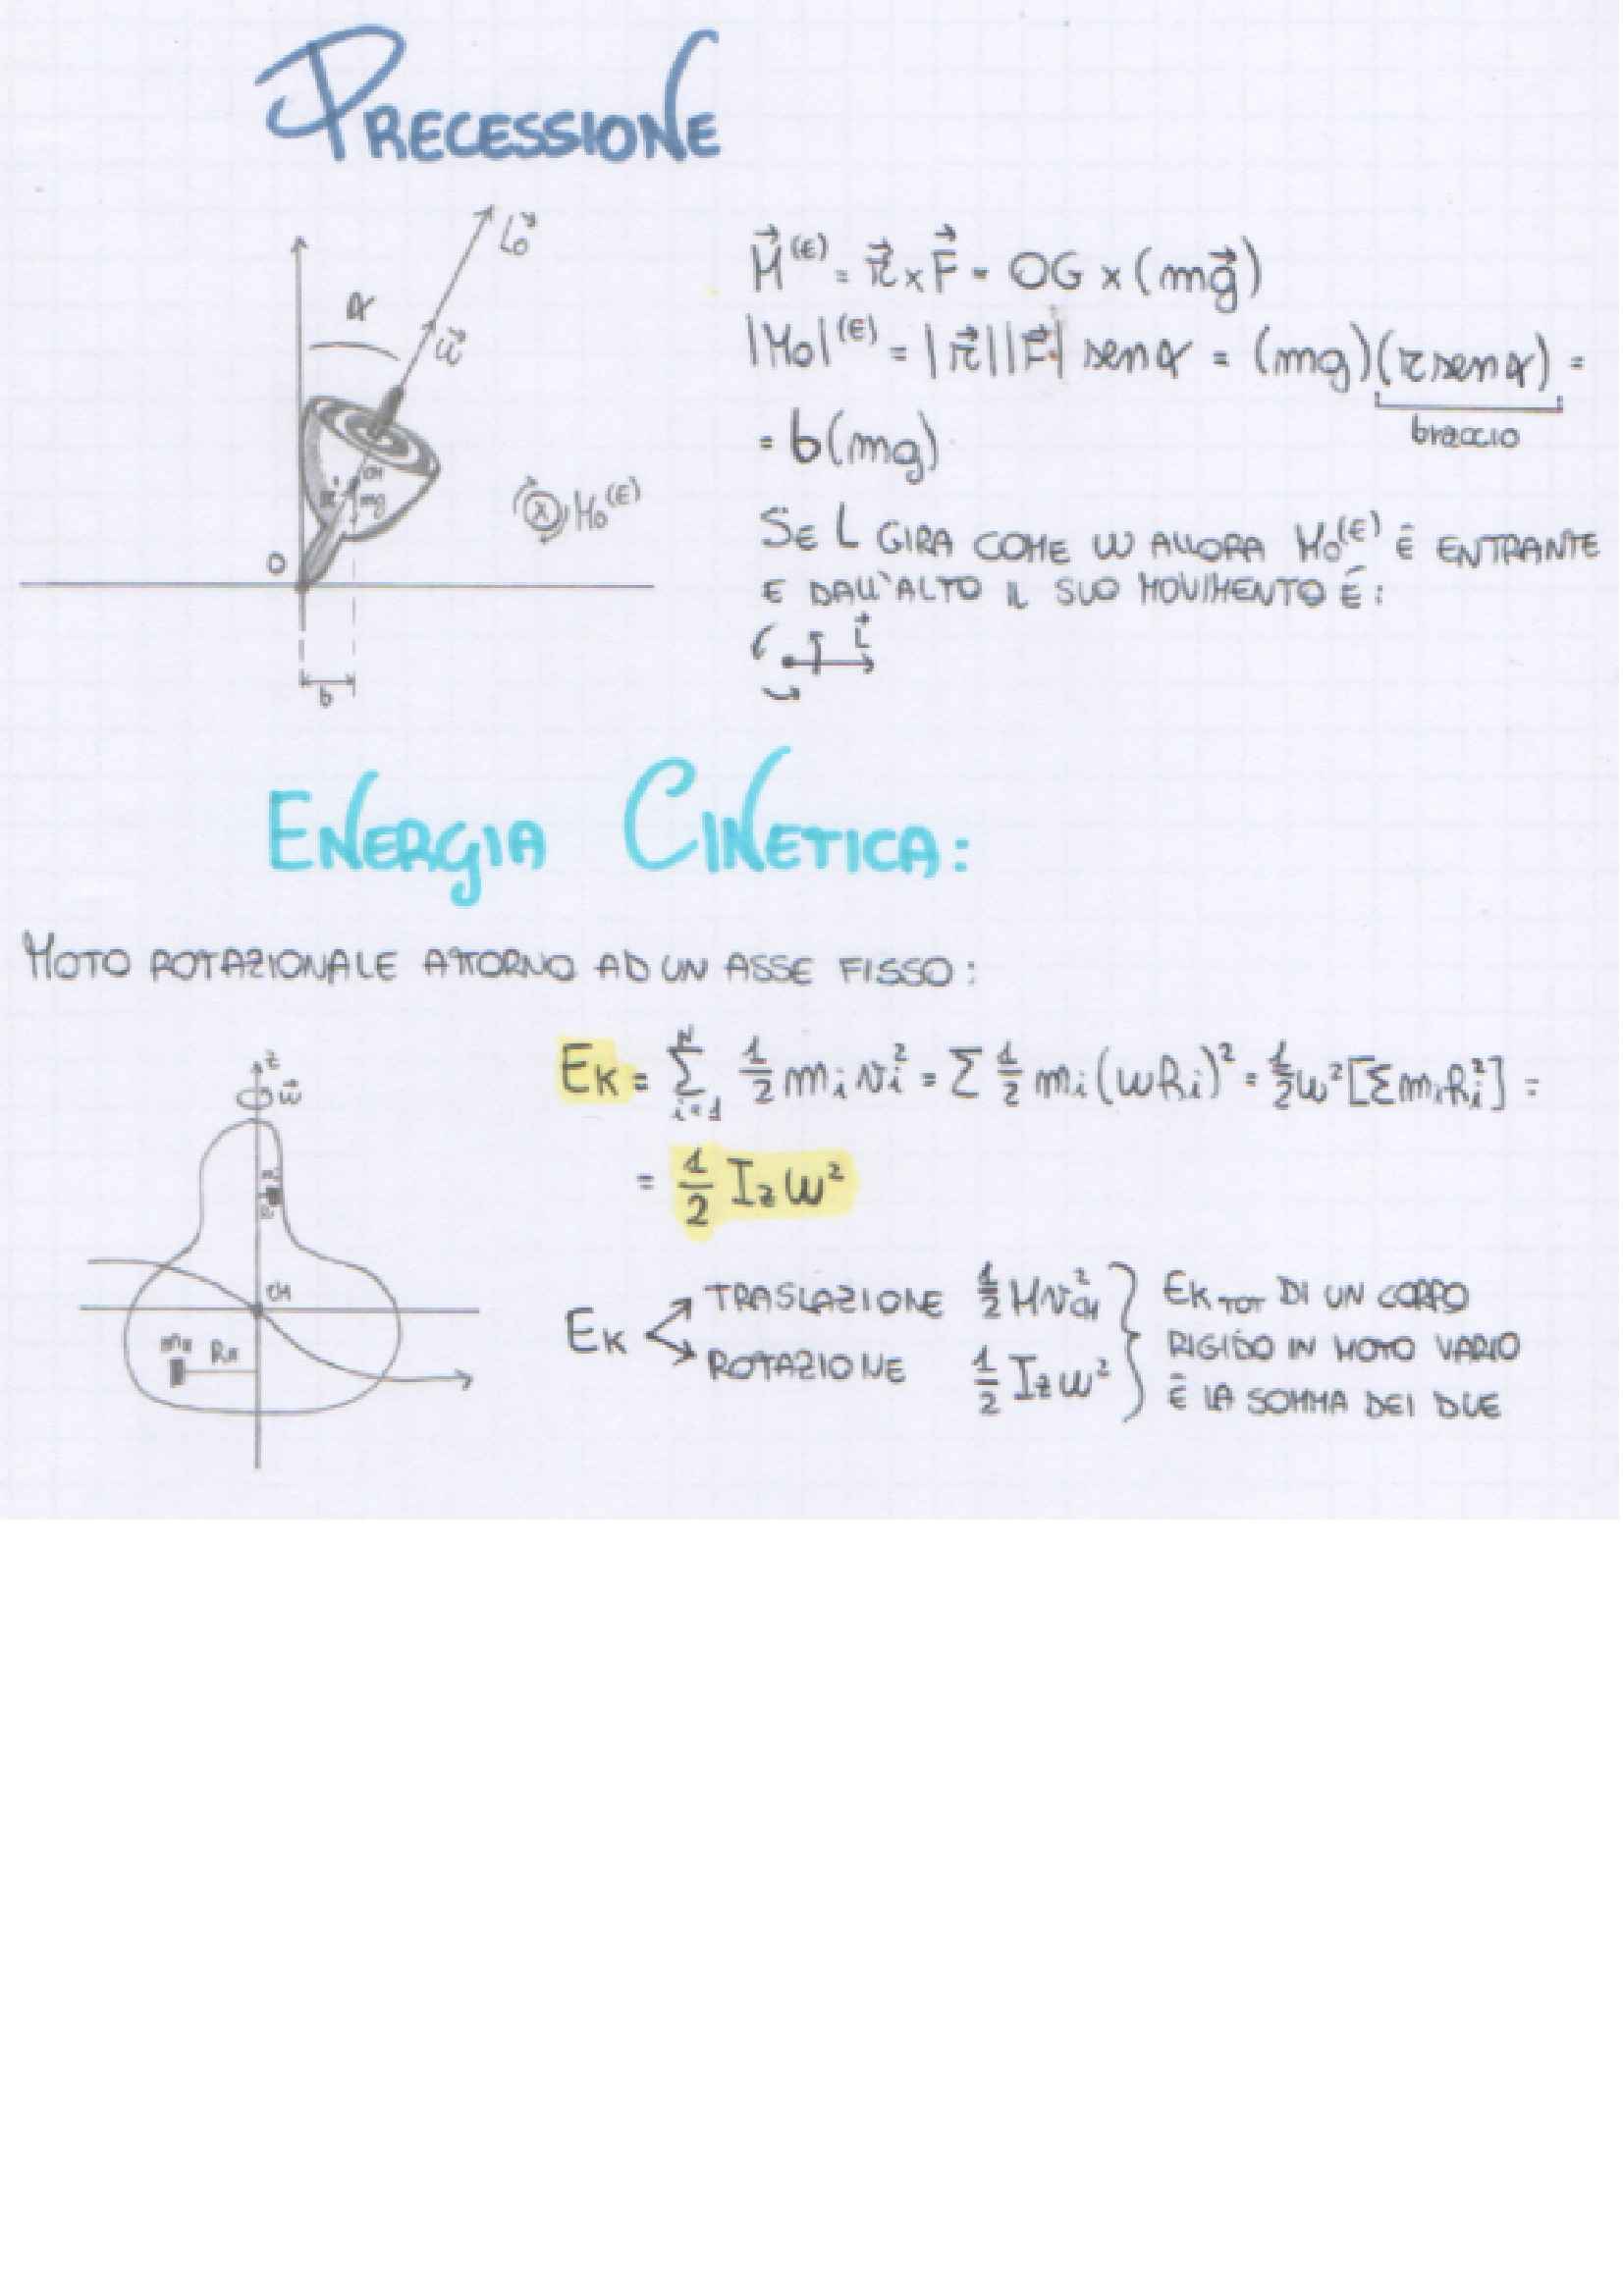 PRECESSIONE
L⃗o
α
ω⃗
CM
r⃗
mg
Mo^(E)
O
b
M⃗^(E) = r⃗ x F⃗ = OG x (mg⃗)
|Mo|^(E) = |r⃗||F⃗| sen α = (mg)(r sen α) =
braccio
= b(mg)
SE L GIRA COME ω ALLORA Mo^(E) È ENTRANTE
E DALL'ALTO IL SUO MOVIMENTO È:
L⃗
ENERGIA CINETICA:
MOTO ROTAZIONALE ATTORNO AD UN ASSE FISSO:
z
ω⃗
CM
Ek = Σ i=1 1/2 mi vi² = Σ 1/2 mi (ωRi)² = 1/2 ω² [Σ mi Ri²] =
= 1/2 Iz ω²
Ek
TRASLAZIONE 1/2 M v²CM
ROTAZIONE 1/2 Iz ω²
Ek TOT DI UN CORPO
RIGIDO IN MOTO VARIO
È LA SOMMA DEI DUE